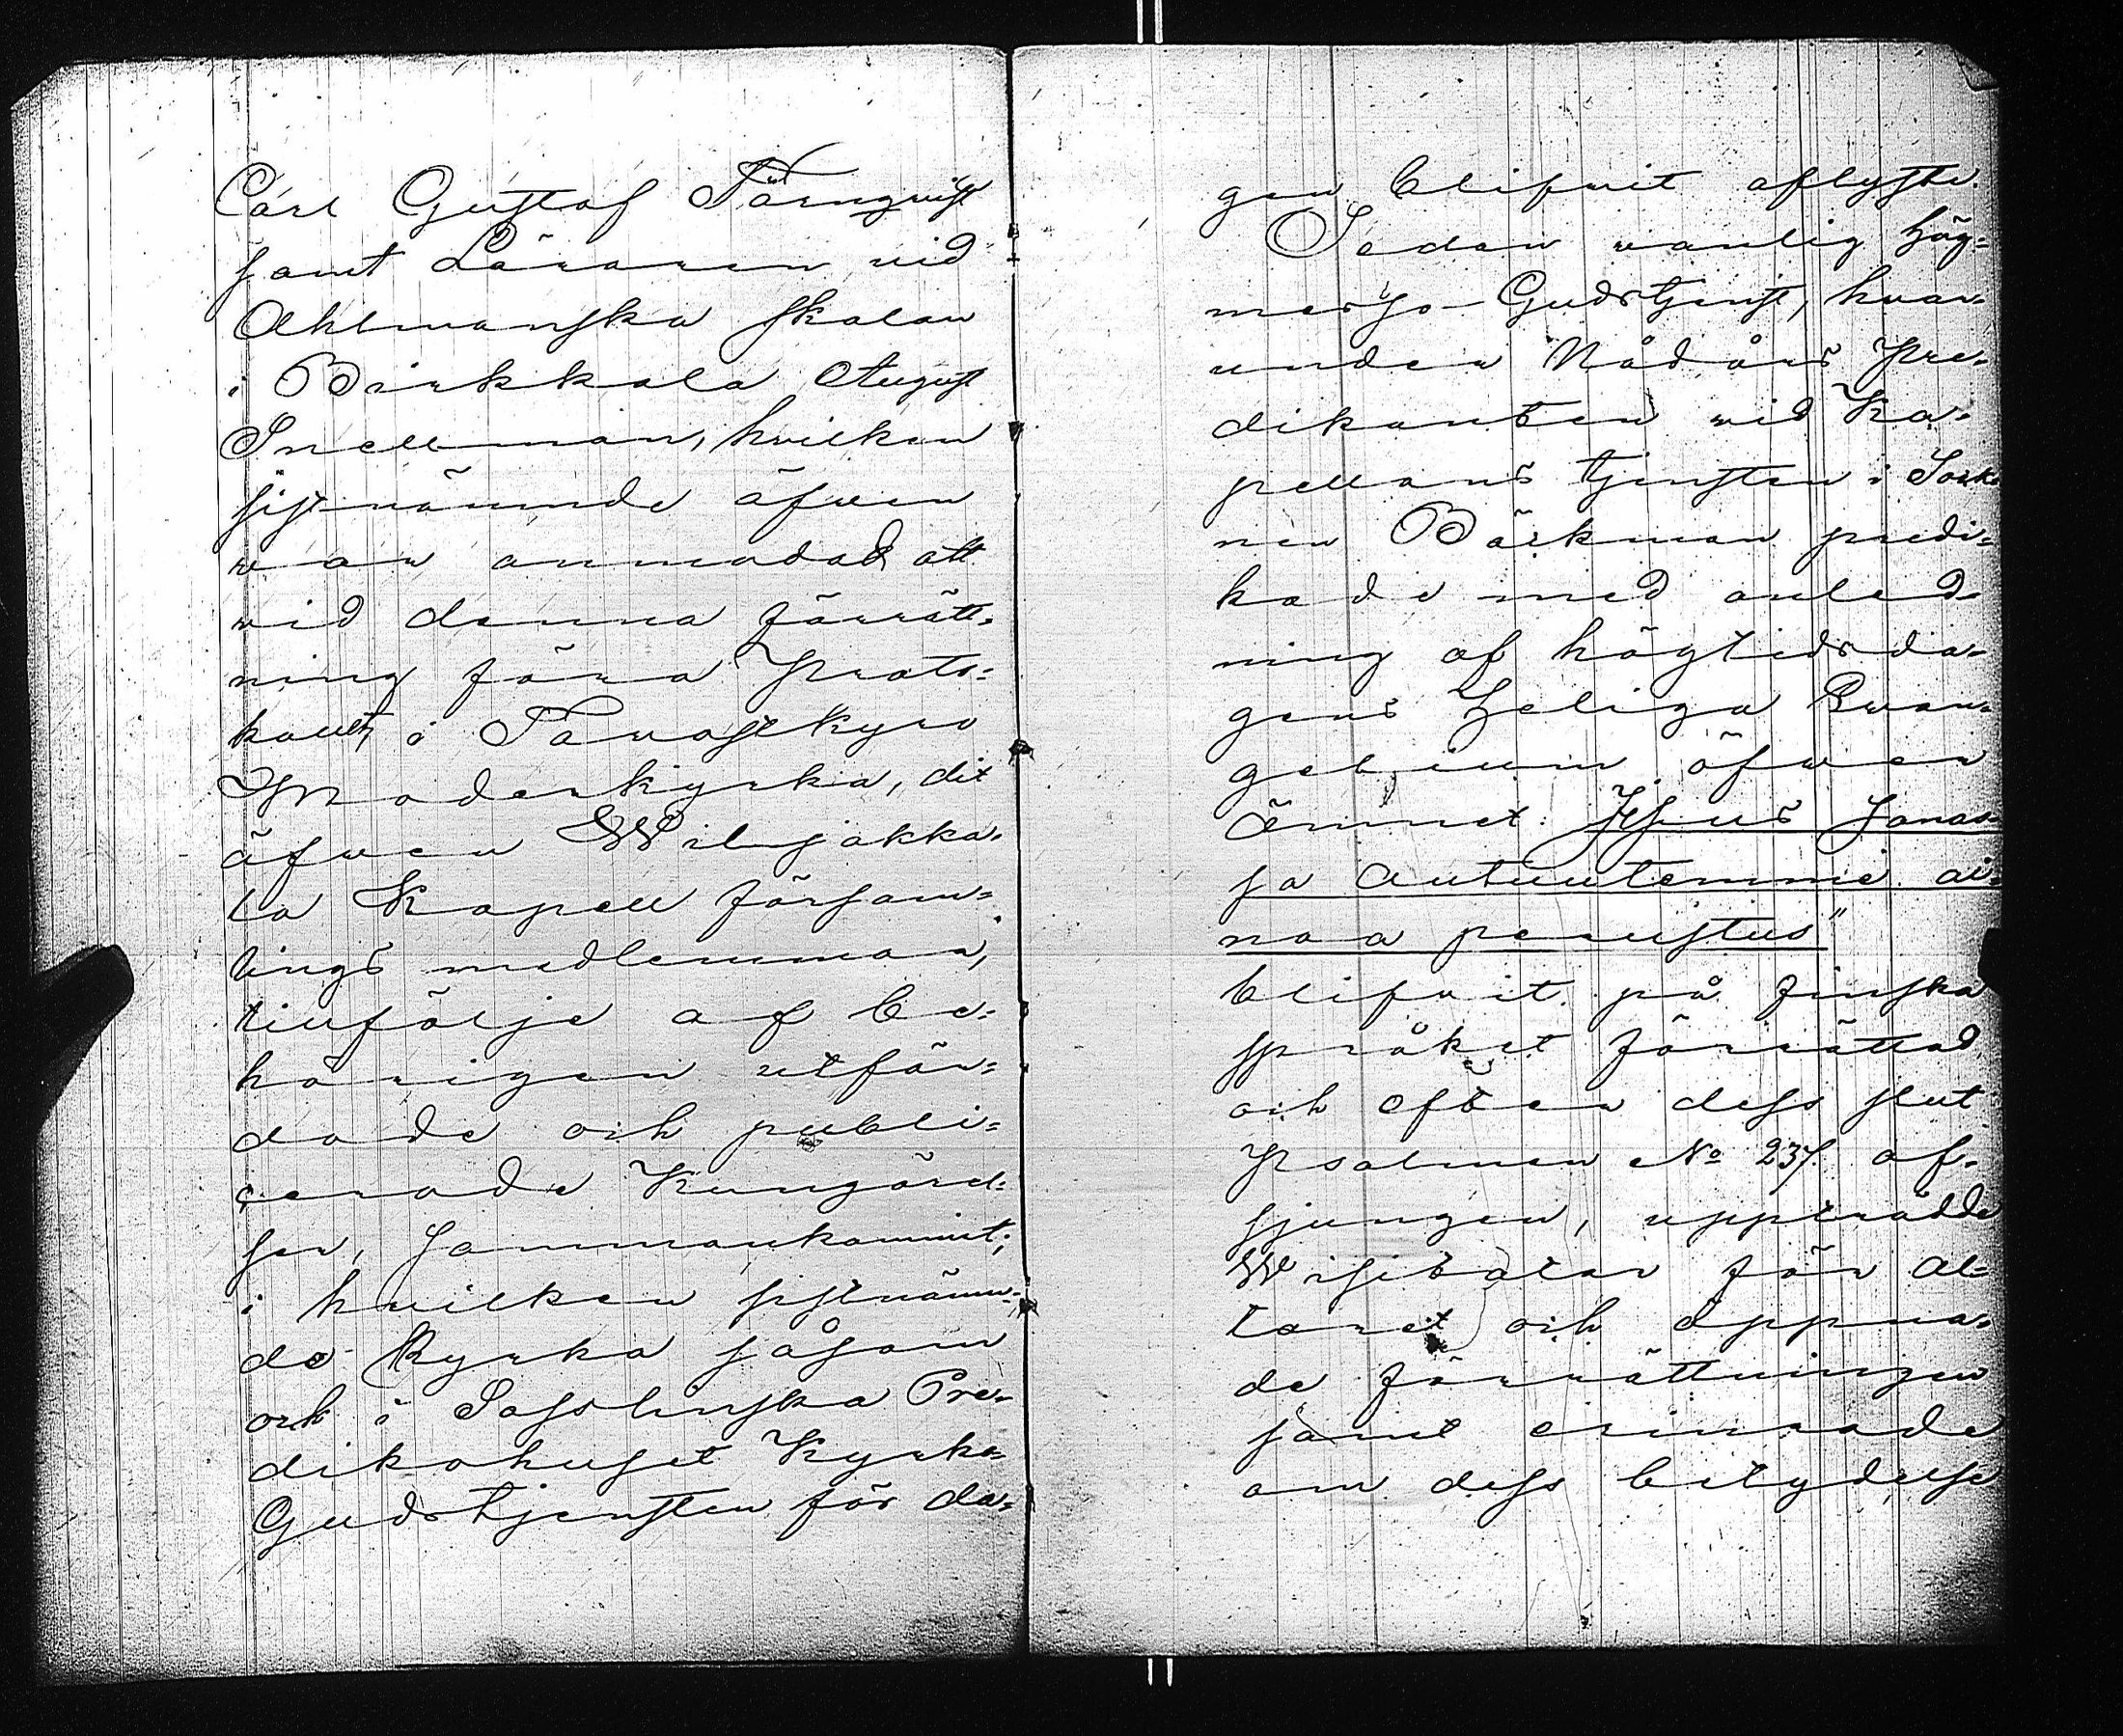 Carl Gustaf Törnqvist
samt Läraren vid
Ahlmanska skolan
i Birkkala August
Snellman, hvilken
sistnämnde äfven
war anmodad att
wid denna förrätt=
ning föra Proto=
kollet, i Tavastkyro
Moderkyrka, dit
äfven Wiljakka=
la Kapell försam=
lings medlemmar,
tillfölje af be=
hörigen utfär=
dade och publi=
cerade Kungörel=
ser, sammankommit;
i hvilken sistnämn=
de Kyrka såsom
och i
dikohuset Kyrko=
Gudstjensten för da=
gen blifvit aflyste.
Sedan wanlig hög=
messo-Gudstjenst, hvar=
under Nådårs Pre=
dikanten wid Ka=
pellans tjensten i
nen Bäckman predi=
kade med anled=
ning af högtidsda=
gens heliga Evan=
gelium öfwer
ämnet: Jesus Janos=
sa autuutemme ai=
noa perustus"
blifvit på finska
språket förrättad
och efter dess slut
Psalmen No 237. af=
sjungen, uppträdde
Wisitator för al=
taret och öppna=
de förrättningen
samt erinrade
om dess betydelse